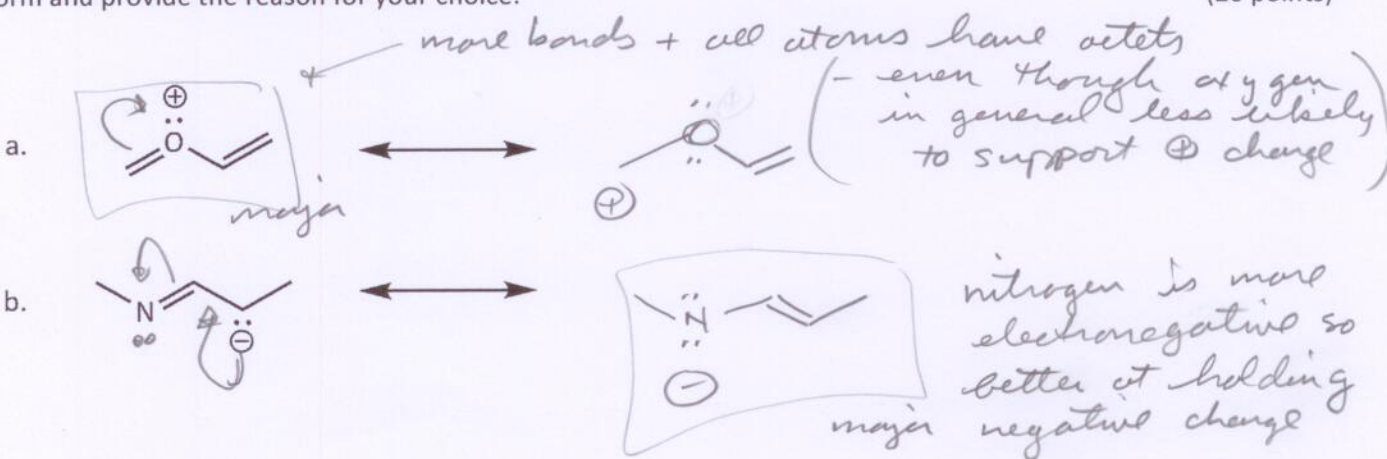 form and provide the reason for your choice.
more bonds + all atoms have octets
(- even though oxygen
in general less likely
to support ⊕ charge)
a.
⊕
O
O
⊕
major
b.
N
⊖
N
⊖
nitrogen is more
electronegative so
better at holding
negative charge
major